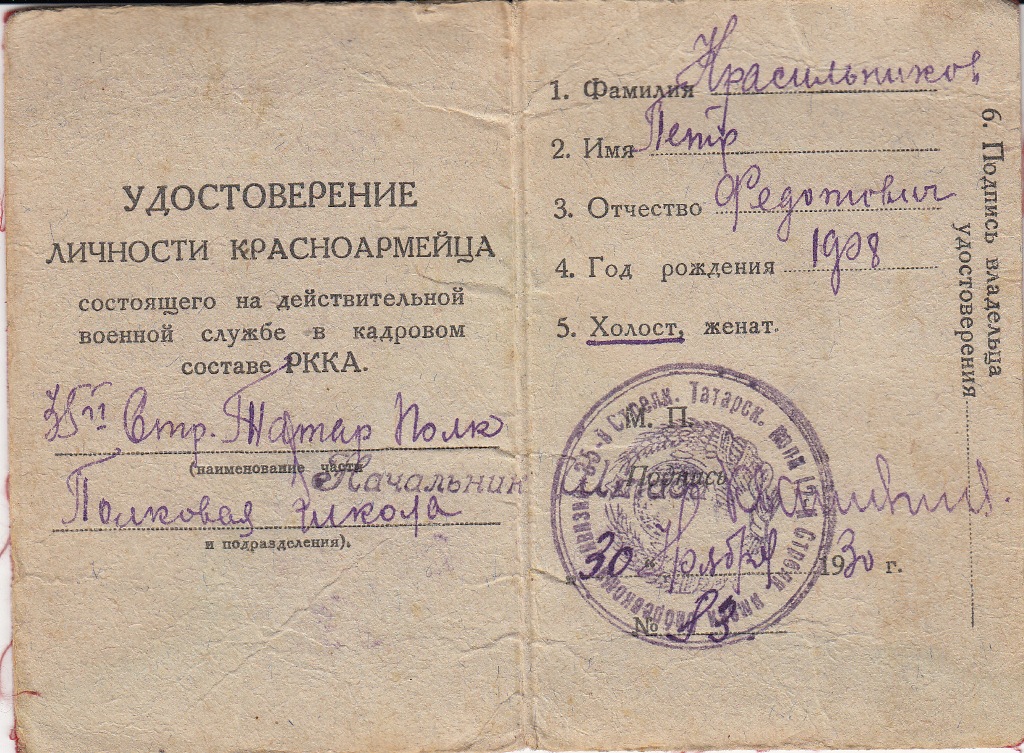 УДОСТОВЕРЕНИЕ
ЛИЧНОСТИ КРАСНОАРМЕЙЦА
состоящего на действительной
военной службе в кадровом
составе РККА.
35й Стр. Татар Полк
(наименование части
Полковая школа
и подразделения).
1. Фамилия Красильников
2. Имя Петр
3. Отчество Федотович
4. Год рождения 1908
5. Холост, женат.
М. П.
Начальник Штаба
Подпись
30 " Ноября 1930 г.
№ 83.
35-й Стрелк. Татарск. полк
6. Подпись владельца
удостоверения